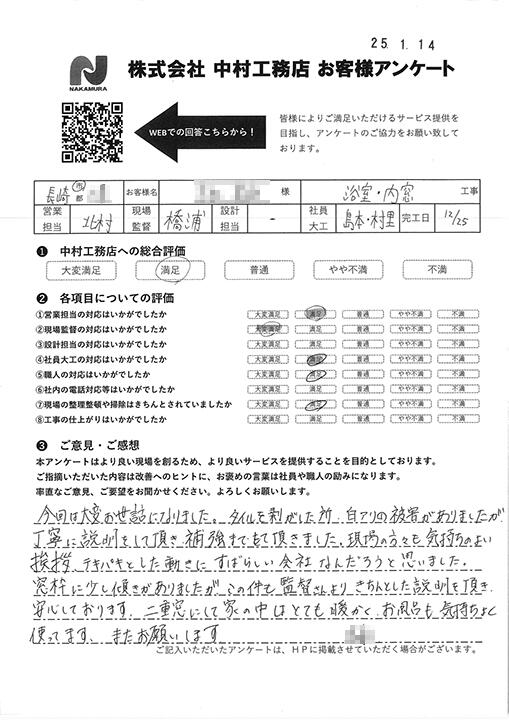 25. 1. 14
NAKAMURA
株式会社 中村工務店 お客様アンケート
WEBでの回答こちらから!
皆様によりご満足いただけるサービス提供を
目指し、アンケートのご協力をお願い致して
おります。
長崎 市 郡 お客様名 様 浴室・内窓 工事
営業担当 北村 現場監督 橋浦 設計担当 - 社員大工 島本・村里 完工日 12/25
❶ 中村工務店への総合評価
大変満足 満足 普通 やや不満 不満
❷ 各項目についての評価
①営業担当の対応はいかがでしたか 大変満足 満足 普通 やや不満 不満
②現場監督の対応はいかがでしたか 大変満足 満足 普通 やや不満 不満
③設計担当の対応はいかがでしたか 大変満足 満足 普通 やや不満 不満
④社員大工の対応はいかがでしたか 大変満足 満足 普通 やや不満 不満
⑤職人の対応はいかがでしたか 大変満足 満足 普通 やや不満 不満
⑥社内の電話対応等はいかがでしたか 大変満足 満足 普通 やや不満 不満
⑦現場の整理整頓や掃除はきちんとされていましたか 大変満足 満足 普通 やや不満 不満
⑧工事の仕上がりはいかがでしたか 大変満足 満足 普通 やや不満 不満
❸ ご意見・ご感想
本アンケートはより良い現場を創るため、より良いサービスを提供することを目的としております。
ご指摘いただいた内容は改善へのヒントに、お褒めの言葉は社員や職人の励みになります。
率直なご意見、ご要望をお聞かせください。よろしくお願いします。
今回は大変お世話になりました。タイルを剥がした所、白アリの被害がありましたが
丁寧に説明をして頂き、補強までして頂きました。現場の方々も気持ちのよい
挨拶、テキパキとした動きに、すばらしい会社なんだろうと思いました。
窓枠に少し傾きがありましたが、この件も監督さんよりきちんとした説明を頂き、
安心しております。二重窓にして家の中はとても暖かく、お風呂も気持ちよく
使ってます、またお願いします
ご記入いただいたアンケートは、HPに掲載させていただく場合がございます。